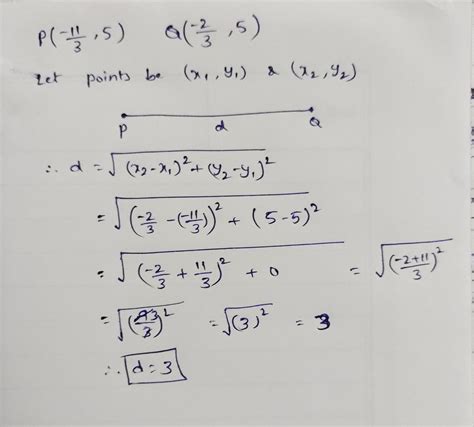 P(-11/3, 5)   Q(-2/3, 5)
Let points be (x₁, y₁) & (x₂, y₂)
P d Q
∴ d = √((x₂-x₁)² + (y₂-y₁)²)
= √((-2/3 - (-11/3))² + (5-5)²)
= √((-2/3 + 11/3)² + 0) = √((-2+11)/3)²
= √(9̸3/3̸)² = √(3)² = 3
∴ d = 3